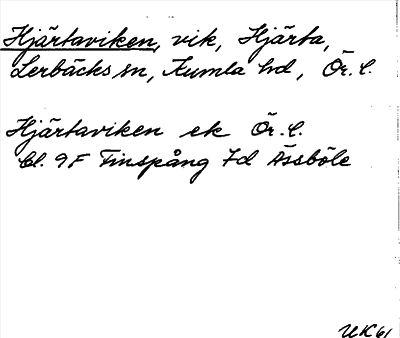 Hjärtaviken, vik, Hjärta,
Lerbäcks sn, Kumla hd, Ör. l.
Hjärtaviken ek Ör. l.
Bl. 9F Finspång 7d Åssböle
UK 61